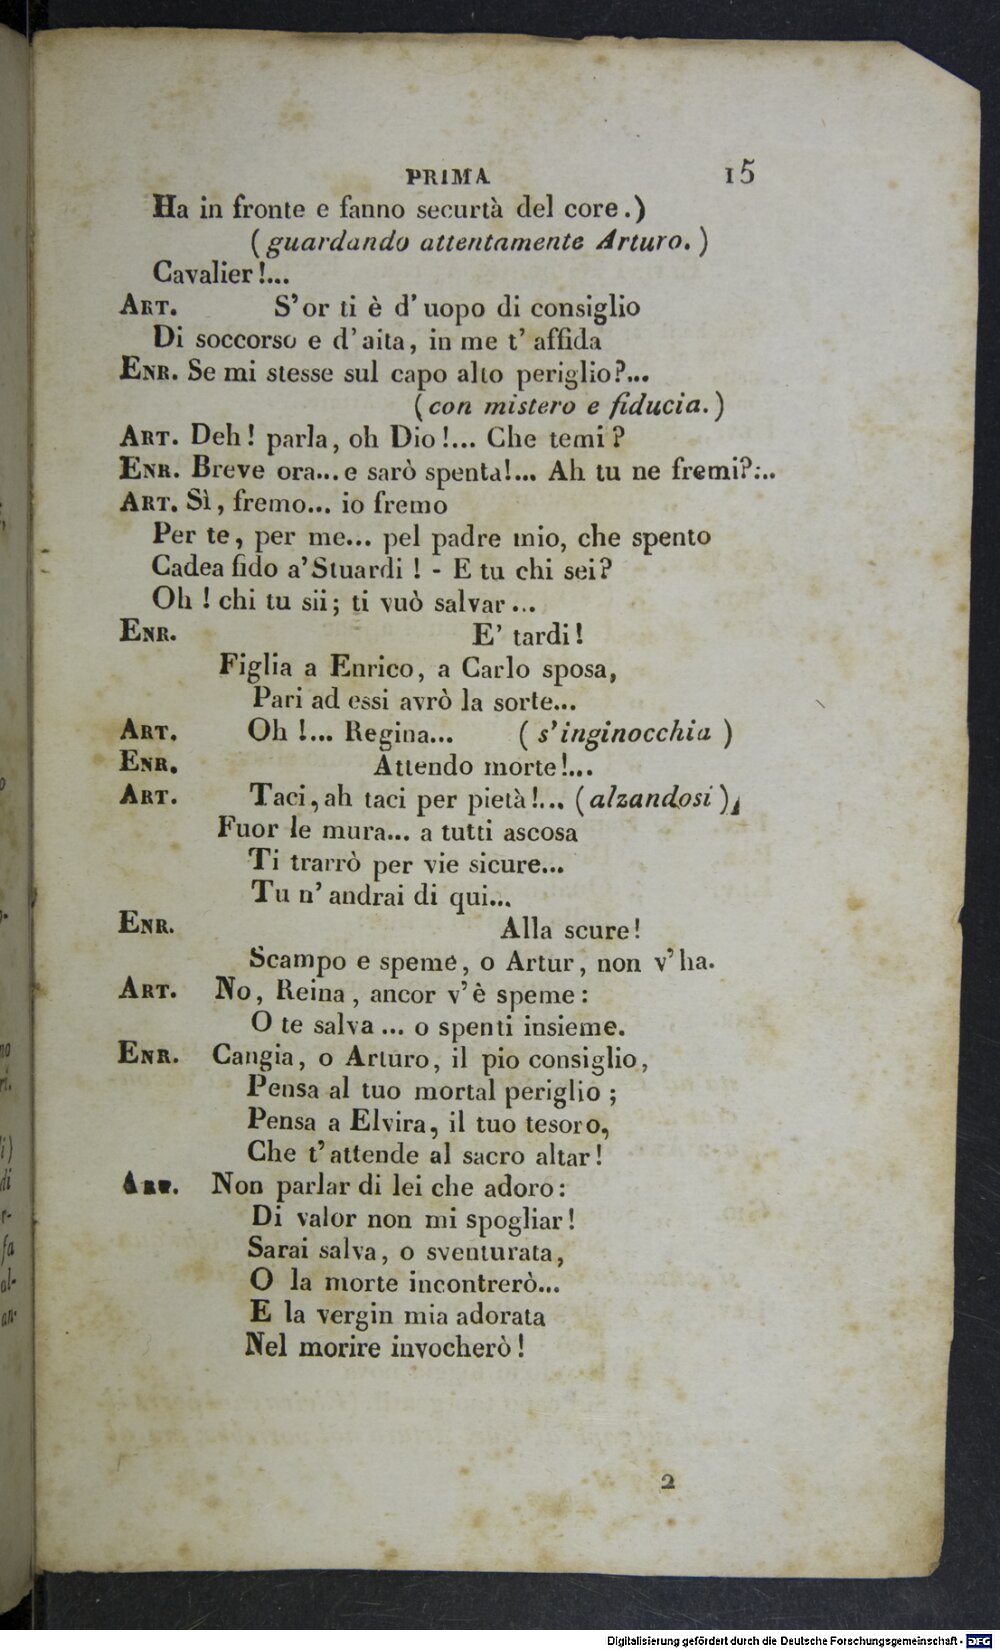 PRIMA 15
Ha in fronte e fanno securtà del core.)
(guardando attentamente Arturo.)
Cavalier!...
ART. S'or ti è d'uopo di consiglio
Di soccorso e d'aita, in me t'affida
ENR. Se mi stesse sul capo alto periglio?...
(con mistero e fiducia.)
ART. Deh! parla, oh Dio!... Che temi?
ENR. Breve ora... e sarò spenta!... Ah tu ne fremi?:..
ART. Sì, fremo... io fremo
Per te, per me... pel padre mio, che spento
Cadea fido a'Stuardi! - E tu chi sei?
Oh! chi tu sii; ti vuò salvar...
ENR. E' tardi!
Figlia a Enrico, a Carlo sposa,
Pari ad essi avrò la sorte...
ART. Oh!... Regina... (s'inginocchia)
ENR. Attendo morte!...
ART. Taci, ah taci per pietà!... (alzandosi)
Fuor le mura... a tutti ascosa
Ti trarrò per vie sicure...
Tu n'andrai di qui...
ENR. Alla scure!
Scampo e speme, o Artur, non v'ha.
ART. No, Reina, ancor v'è speme:
O te salva... o spenti insieme.
ENR. Cangia, o Arturo, il pio consiglio,
Pensa al tuo mortal periglio;
Pensa a Elvira, il tuo tesoro,
Che t'attende al sacro altar!
ART. Non parlar di lei che adoro:
Di valor non mi spogliar!
Sarai salva, o sventurata,
O la morte incontrerò...
E la vergin mia adorata
Nel morire invocherò!
2
Digitalisierung gefördert durch die Deutsche Forschungsgemeinschaft - DFG